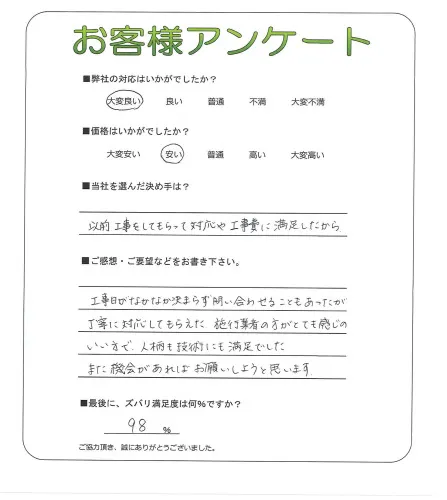 お客様アンケート
■弊社の対応はいかがでしたか？
大変良い 良い 普通 不満 大変不満
■価格はいかがでしたか？
大変安い 安い 普通 高い 大変高い
■当社を選んだ決め手は？
以前工事をしてもらって対応や工事費に満足したから
■ご感想・ご要望などをお書き下さい。
工事日がなかなか決まらず問い合わせることもあったが
丁寧に対応してもらえた 施行業者の方がとても感じの
いい方で、人柄も技術にも満足でした
また機会があればお願いしようと思います
■最後に、ズバリ満足度は何%ですか？
98 %
ご協力頂き、誠にありがとうございました。